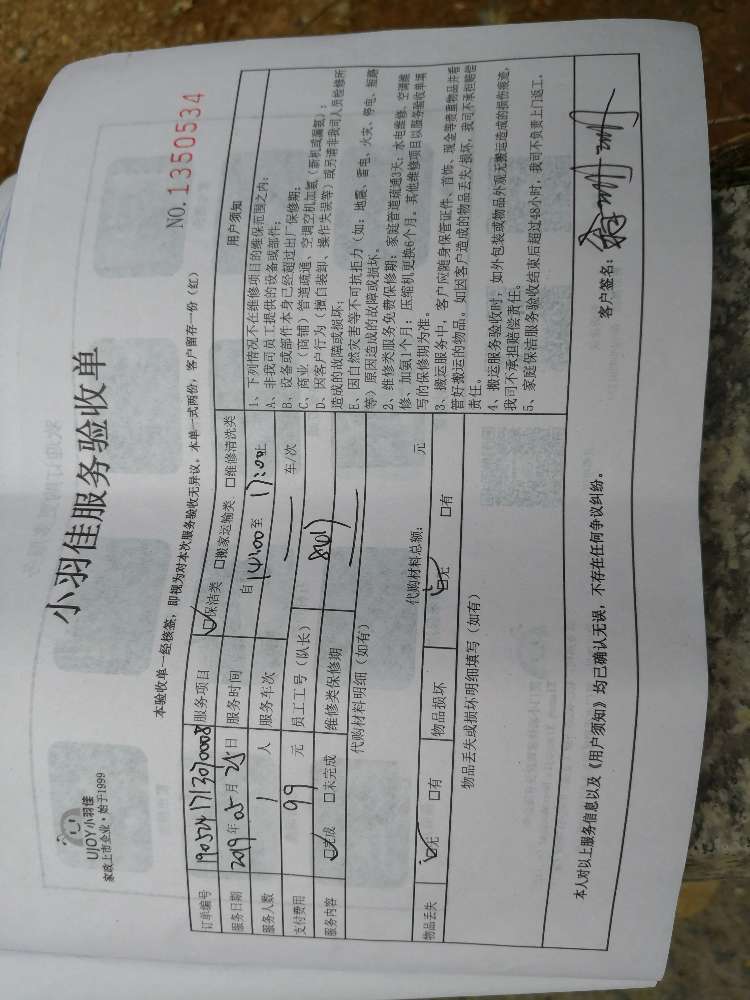 UJOY小羽佳
家政上市企业·始于1999
小羽佳服务验收单
NO.1350534
本验收单一经核签，即视为对本次服务验收无异议，本单一式两份，客户留存一份（红）
订单编号 1905241713070008 服务项目 ☑保洁类 □搬家运输类 □维修清洗类
服务日期 2019年05月25日 服务时间 自14:00至17:00止
服务人数 1 人 服务车次 车/次
支付费用 99 元 员工工号（队长） 8017
服务内容 ☑完成 □未完成 维修类保修期
代购材料明细（如有）
代购材料总额： 元
物品丢失 ☑无 □有 物品损坏 ☑无 □有
物品丢失或损坏明细填写（如有）
用户须知
1、下列情况不在维修项目的维保范围之内：
A、非我司员工提供的设备或部件；
B、设备或部件本身已经超过出厂保修期；
C、商业（商铺）管道疏通、空调空机加氨（新机或漏氨）；
D、因客户行为（擅自装卸、操作失误等）或另请非我司人员检修所
造成的故障或损坏；
E、因自然灾害等不可抗拒力（如：地震、雷电、火灾、停电、短路
等）原因造成的故障或损坏。
2、维修类服务免费保修期：家庭管道疏通3天；水电维修、空调维
修、加氨1个月；压缩机更换6个月。其他维修项目以服务验收单填
写的保修期为准。
3、搬运服务中，客户应随身保管证件、首饰、现金等贵重物品并看
管好搬运的物品。如因客户造成的物品丢失/损坏，我司不承担赔偿
责任。
4、搬运服务验收时，如外包装或物品外观无搬运造成的损伤痕迹，
我司不承担赔偿责任。
5、家庭保洁服务验收结束后超过48小时，我司不负责上门返工。
本人对以上服务信息以及《用户须知》均已确认无误，不存在任何争议纠纷。
客户签名：